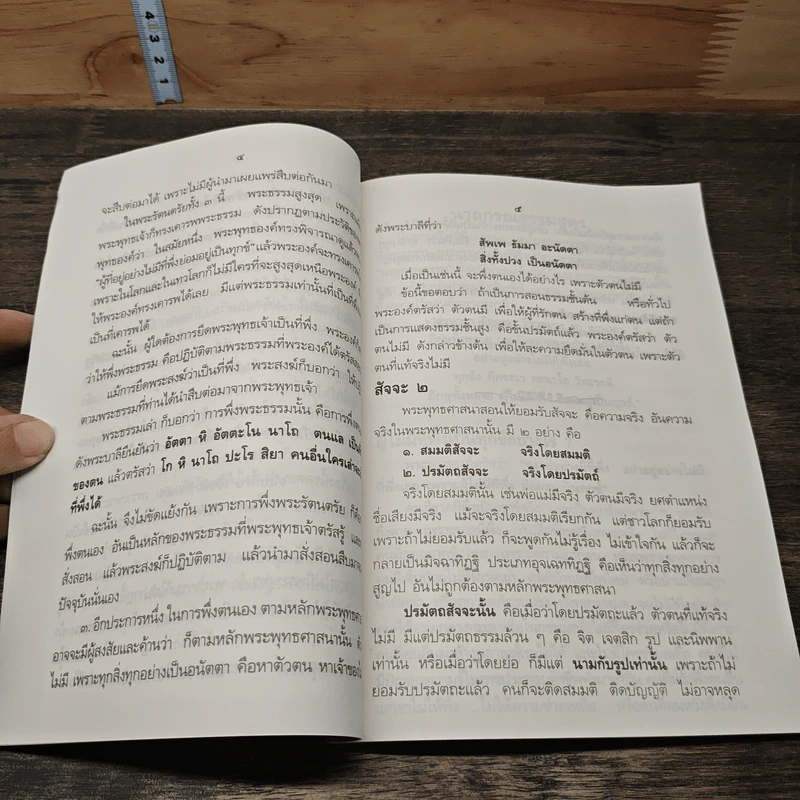 ๔
จะสืบต่อมาได้ เพราะไม่มีผู้นำมาเผยแพร่สืบต่อกันมา
ในพระรัตนตรัยทั้ง ๓ นี้ พระธรรมสูงสุด
พระพุทธเจ้าก็ทรงเคารพพระธรรม ดังปรากฏตามประวัติ
พุทธองค์ว่า ในสมัยหนึ่ง พระพุทธองค์ทรงพิจารณาดูแล้ว
"ผู้ที่อยู่อย่างไม่มีที่พึ่งย่อมอยู่เป็นทุกข์" แล้วพระองค์จะทรงเคารพ
เพราะในโลกและในเทวโลกก็ไม่มีใครที่จะสูงสุดเหนือพระองค์
ให้พระองค์ทรงเคารพได้เลย มีแต่พระธรรมเท่านั้นที่เป็นที่
เป็นที่เคารพได้
ฉะนั้น ผู้ใดต้องการยึดพระพุทธเจ้าเป็นที่พึ่ง พระองค์
ว่าให้พึ่งพระธรรม คือปฏิบัติตามพระธรรมที่พระองค์ได้ตรัส
แม้การยึดพระสงฆ์ว่าเป็นที่พึ่ง พระสงฆ์ก็บอกว่า ให้
ตามพระธรรมที่ท่านได้นำสืบต่อมาจากพระพุทธเจ้า
พระธรรมเล่า ก็บอกว่า การพึ่งพระธรรมนั้น คือการพึ่ง
ดังพระบาลียืนยันว่า อัตตา หิ อัตตะโน นาโถ ตนแล เป็น
ของตน แล้วตรัสว่า โก หิ นาโถ ปะโร สิยา คนอื่นใครเล่าจะ
ที่พึ่งได้
ฉะนั้น จึงไม่ขัดแย้งกัน เพราะการพึ่งพระรัตนตรัย ก็คือ
พึ่งตนเอง อันเป็นหลักของพระธรรมที่พระพุทธเจ้าตรัสรู้ และ
สั่งสอน แล้วพระสงฆ์ก็ปฏิบัติตาม แล้วนำมาสั่งสอนสืบมา
ปัจจุบันนั่นเอง
๓. อีกประการหนึ่ง ในการพึ่งตนเอง ตามหลักพระพุทธ
อาจจะมีผู้สงสัยและค้านว่า ก็ตามหลักพระพุทธศาสนานั้น
ไม่มี เพราะทุกสิ่งทุกอย่างเป็นอนัตตา คือหาตัวตน หาเจ้าของ
๕
ดังพระบาลีที่ว่า
สัพเพ ธัมมา อะนัตตา
สิ่งทั้งปวง เป็นอนัตตา
เมื่อเป็นเช่นนี้ จะพึ่งตนเองได้อย่างไร เพราะตัวตนไม่มี
ข้อนี้ขอตอบว่า ถ้าเป็นการสอนธรรมชั้นต้น หรือทั่วไป
พระองค์ตรัสว่า ตัวตนมี เพื่อให้ผู้ที่รักตน สร้างที่พึ่งแก่ตน แต่ถ้า
เป็นการแสดงธรรมชั้นสูง คือขั้นปรมัตถ์แล้ว พระองค์ตรัสว่า ตัว
ตนไม่มี ดังกล่าวข้างต้น เพื่อให้ละความยึดมั่นในตัวตน เพราะตัว
ตนที่แท้จริงไม่มี
สัจจะ ๒
พระพุทธศาสนาสอนให้ยอมรับสัจจะ คือความจริง อันความ
จริงในพระพุทธศาสนานั้น มี ๒ อย่าง คือ
๑. สมมติสัจจะ จริงโดยสมมติ
๒. ปรมัตถสัจจะ จริงโดยปรมัตถ์
จริงโดยสมมตินั้น เช่นพ่อแม่มีจริง ตัวตนมีจริง ยศตำแหน่ง
ชื่อเสียงมีจริง แม้จะจริงโดยสมมติเรียกกัน แต่ชาวโลกก็ยอมรับ
เพราะถ้าไม่ยอมรับแล้ว ก็จะพูดกันไม่รู้เรื่อง ไม่เข้าใจกัน แล้วก็จะ
กลายเป็นมิจฉาทิฏฐิ ประเภทอุจเฉททิฏฐิ คือเห็นว่าทุกสิ่งทุกอย่าง
สูญไป อันไม่ถูกต้องตามหลักพระพุทธศาสนา
ปรมัตถสัจจะนั้น คือเมื่อว่าโดยปรมัตถะแล้ว ตัวตนที่แท้จริง
ไม่มี มีแต่ปรมัตถธรรมล้วน ๆ คือ จิต เจตสิก รูป และนิพพาน
เท่านั้น หรือเมื่อว่าโดยย่อ ก็มีแต่ นามกับรูปเท่านั้น เพราะถ้าไม่
ยอมรับปรมัตถะแล้ว คนก็จะติดสมมติ ติดบัญญัติ ไม่อาจหลุด
4
3
2
1